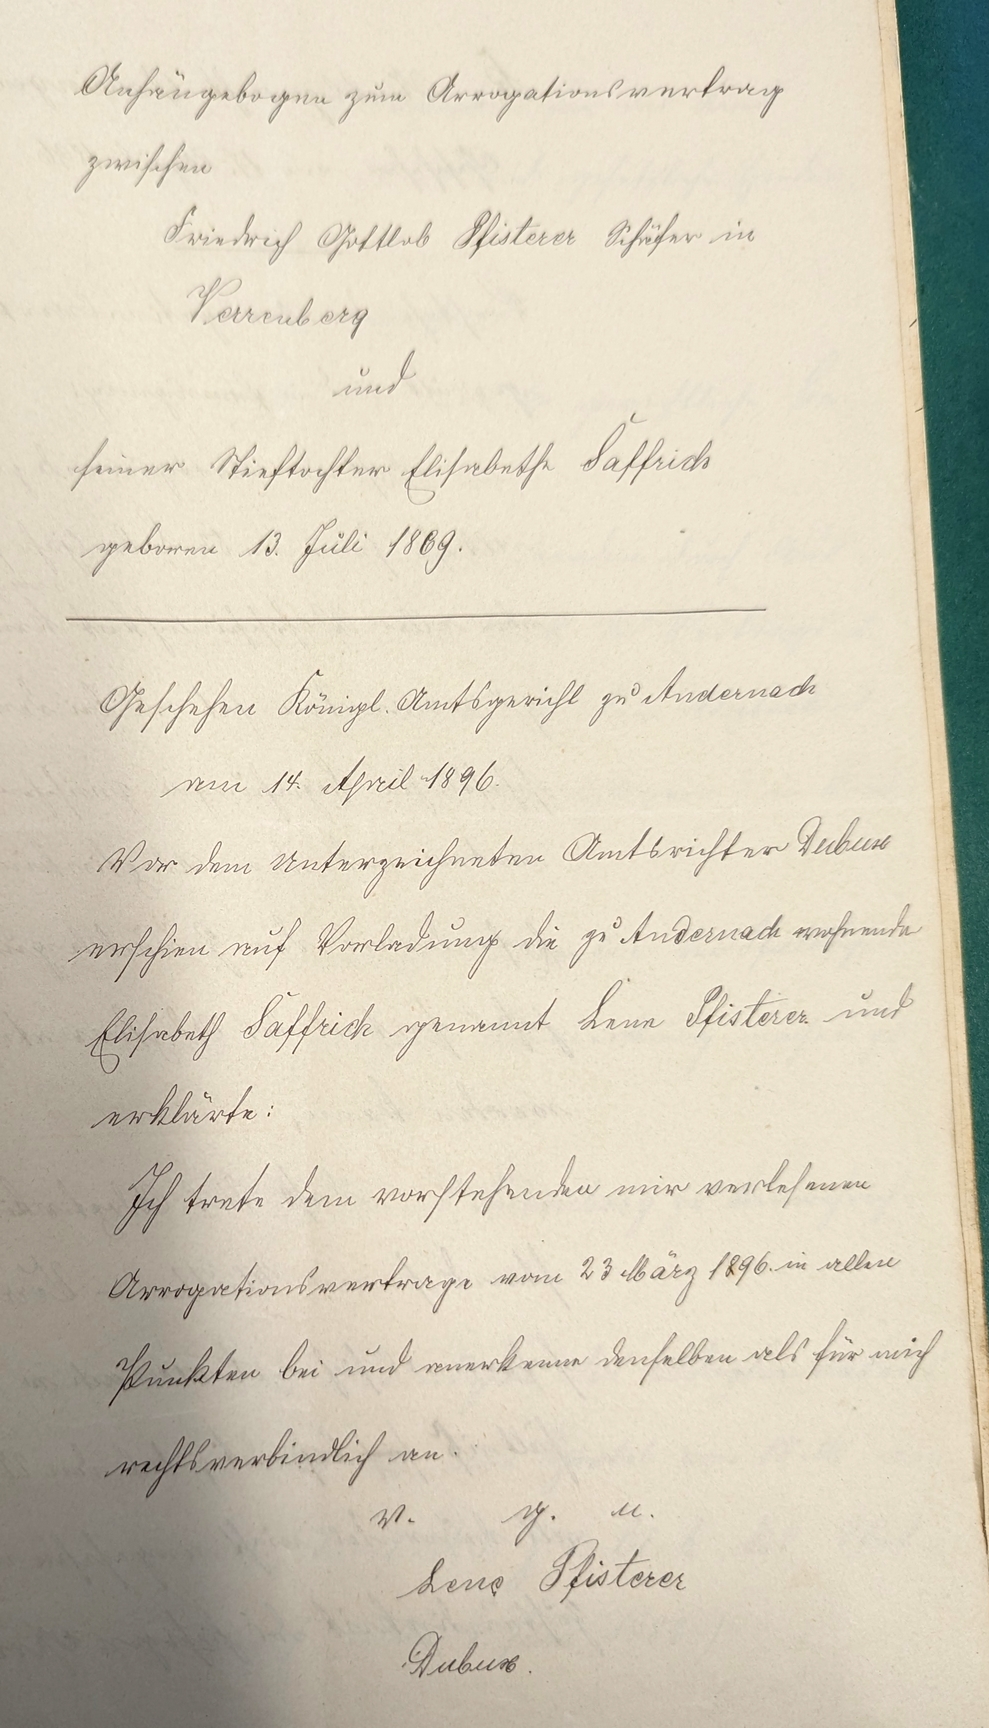 Anhängebogen zum Arrogationsvertrag
zwischen
Friedrich Gottlob Pfisterer Schäfer in
Verrenberg
und
seiner Stieftochter Elisabethe Saffrich
geboren 13. Juli 1869.
Geschehen Königl. Amtsgericht zu Andernach
am 14. April 1896.
Vor dem Unterzeichneten Amtsrichter Dubusc
erschien auf Vorladung die zu Andernach wohnende
Elisabeth Saffrich genannt Lene Pfisterer und
erklärte:
Ich trete dem vorstehenden mir verlesenen
Arrogationsvertrage vom 23 März 1896. in allen
Punkten bei und anerkenne denselben als für mich
rechtsverbindlich an.
v. g. u.
Lene Pfisterer
Dubusc.